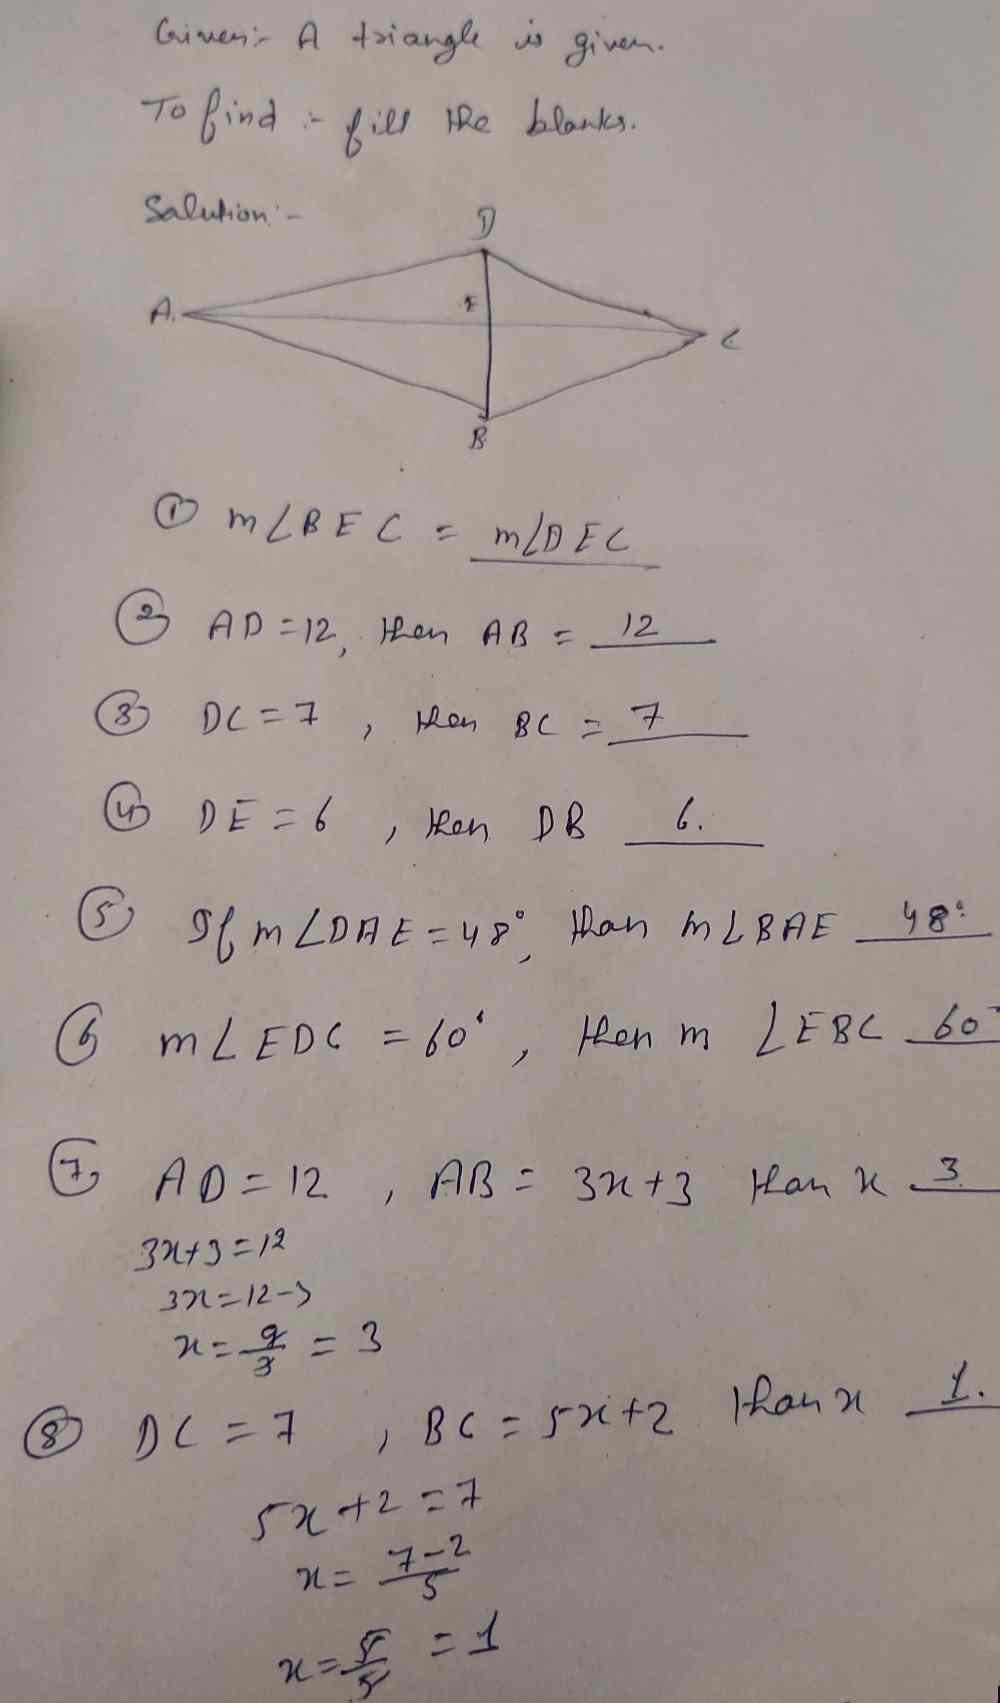 Given:- A triangle is given.
To find :- fill the blanks.
Solution:-
D
A.
E
C
B
① m∠BEC = m∠DEC
② AD=12, then AB = 12
③ DC=7, then BC = 7
④ DE=6, then DB 6.
⑤ If m∠DAE=48°, than m∠BAE 48°
⑥ m∠EDC = 60°, then m ∠EBC 60°
⑦ AD=12, AB= 3x+3 than x 3
3x+3=12
3x=12-3
x= 9/3 = 3
⑧ DC=7, BC = 5x+2 than x 1.
5x+2=7
x= 7-2/5
x= 5/5 = 1